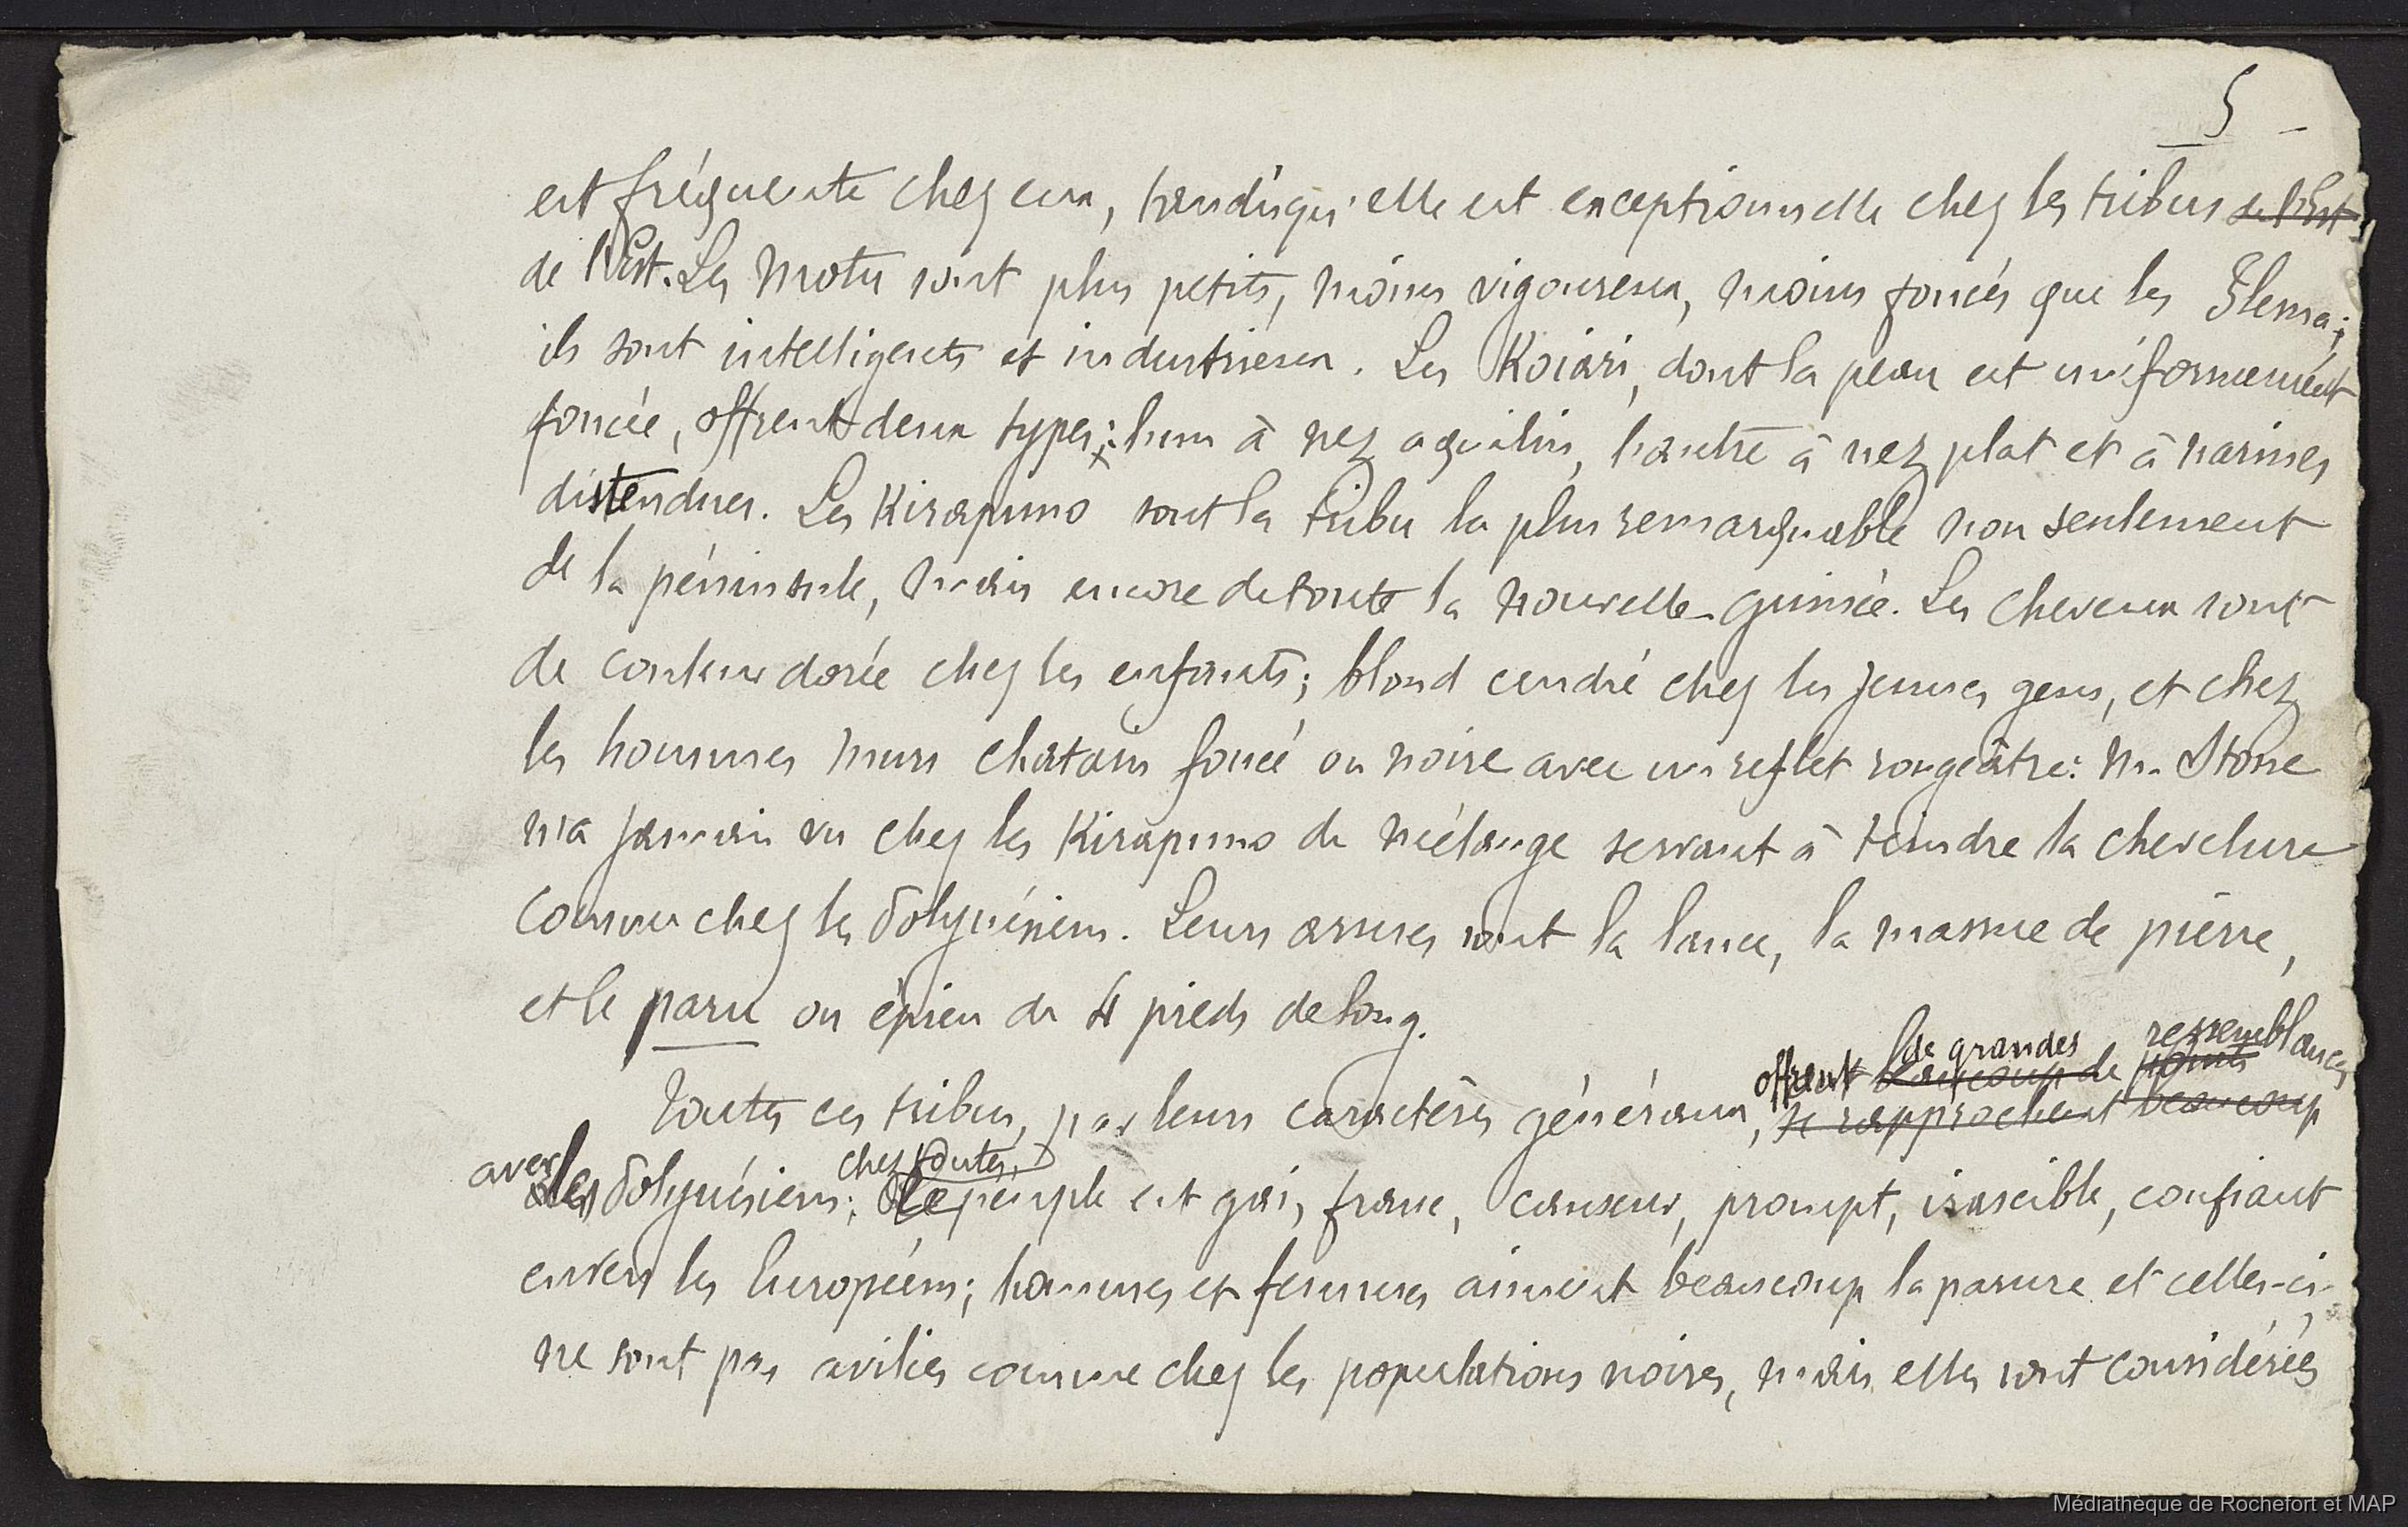 5 -
est fréquente chez eux, tandisqu'elle est exceptionnelle chez les tribus de l'Est
de l'Est. Les Motu sont plus petits, moins vigoureux, moins foncés que les Ilema;
ils sont intelligents et industrieux. Les Koiari, dont la peau est uniformément
foncée, offrent deux types: l'un à nez aquilin, l'autre à nez plat et à narines
distendues. Les Kirapuno sont la tribu la plus remarquable non seulement
de la péninsule, mais encore de toute la Nouvelle-Guinée. Les cheveux sont
de couleur dorée chez les enfants; blond cendré chez les jeunes gens, et chez
les hommes murs chatain foncé ou noire avec un reflet rougeâtre: Mr. Stone
n'a jamais vu chez les Kirapuno de mélange servant à teindre la chevelure
comme chez les Polynésiens. Leurs armes sont la lance, la massue de pierre,
et le paru ou épieu de 4 pieds de long.
offrent de grandes ressemblances
beaucoup de points
Toutes ces tribus, par leurs caractères généraux, se rapprochent beaucoup
chez toutes,
avec les Polynésiens; le peuple est gai, franc, causeur, prompt, irascible, confiant
envers les Européens; hommes et femmes aiment beaucoup la parure et celles-ci
ne sont pas avilies comme chez les populations noires, mais elles sont considérées
Médiathèque de Rochefort et MAP